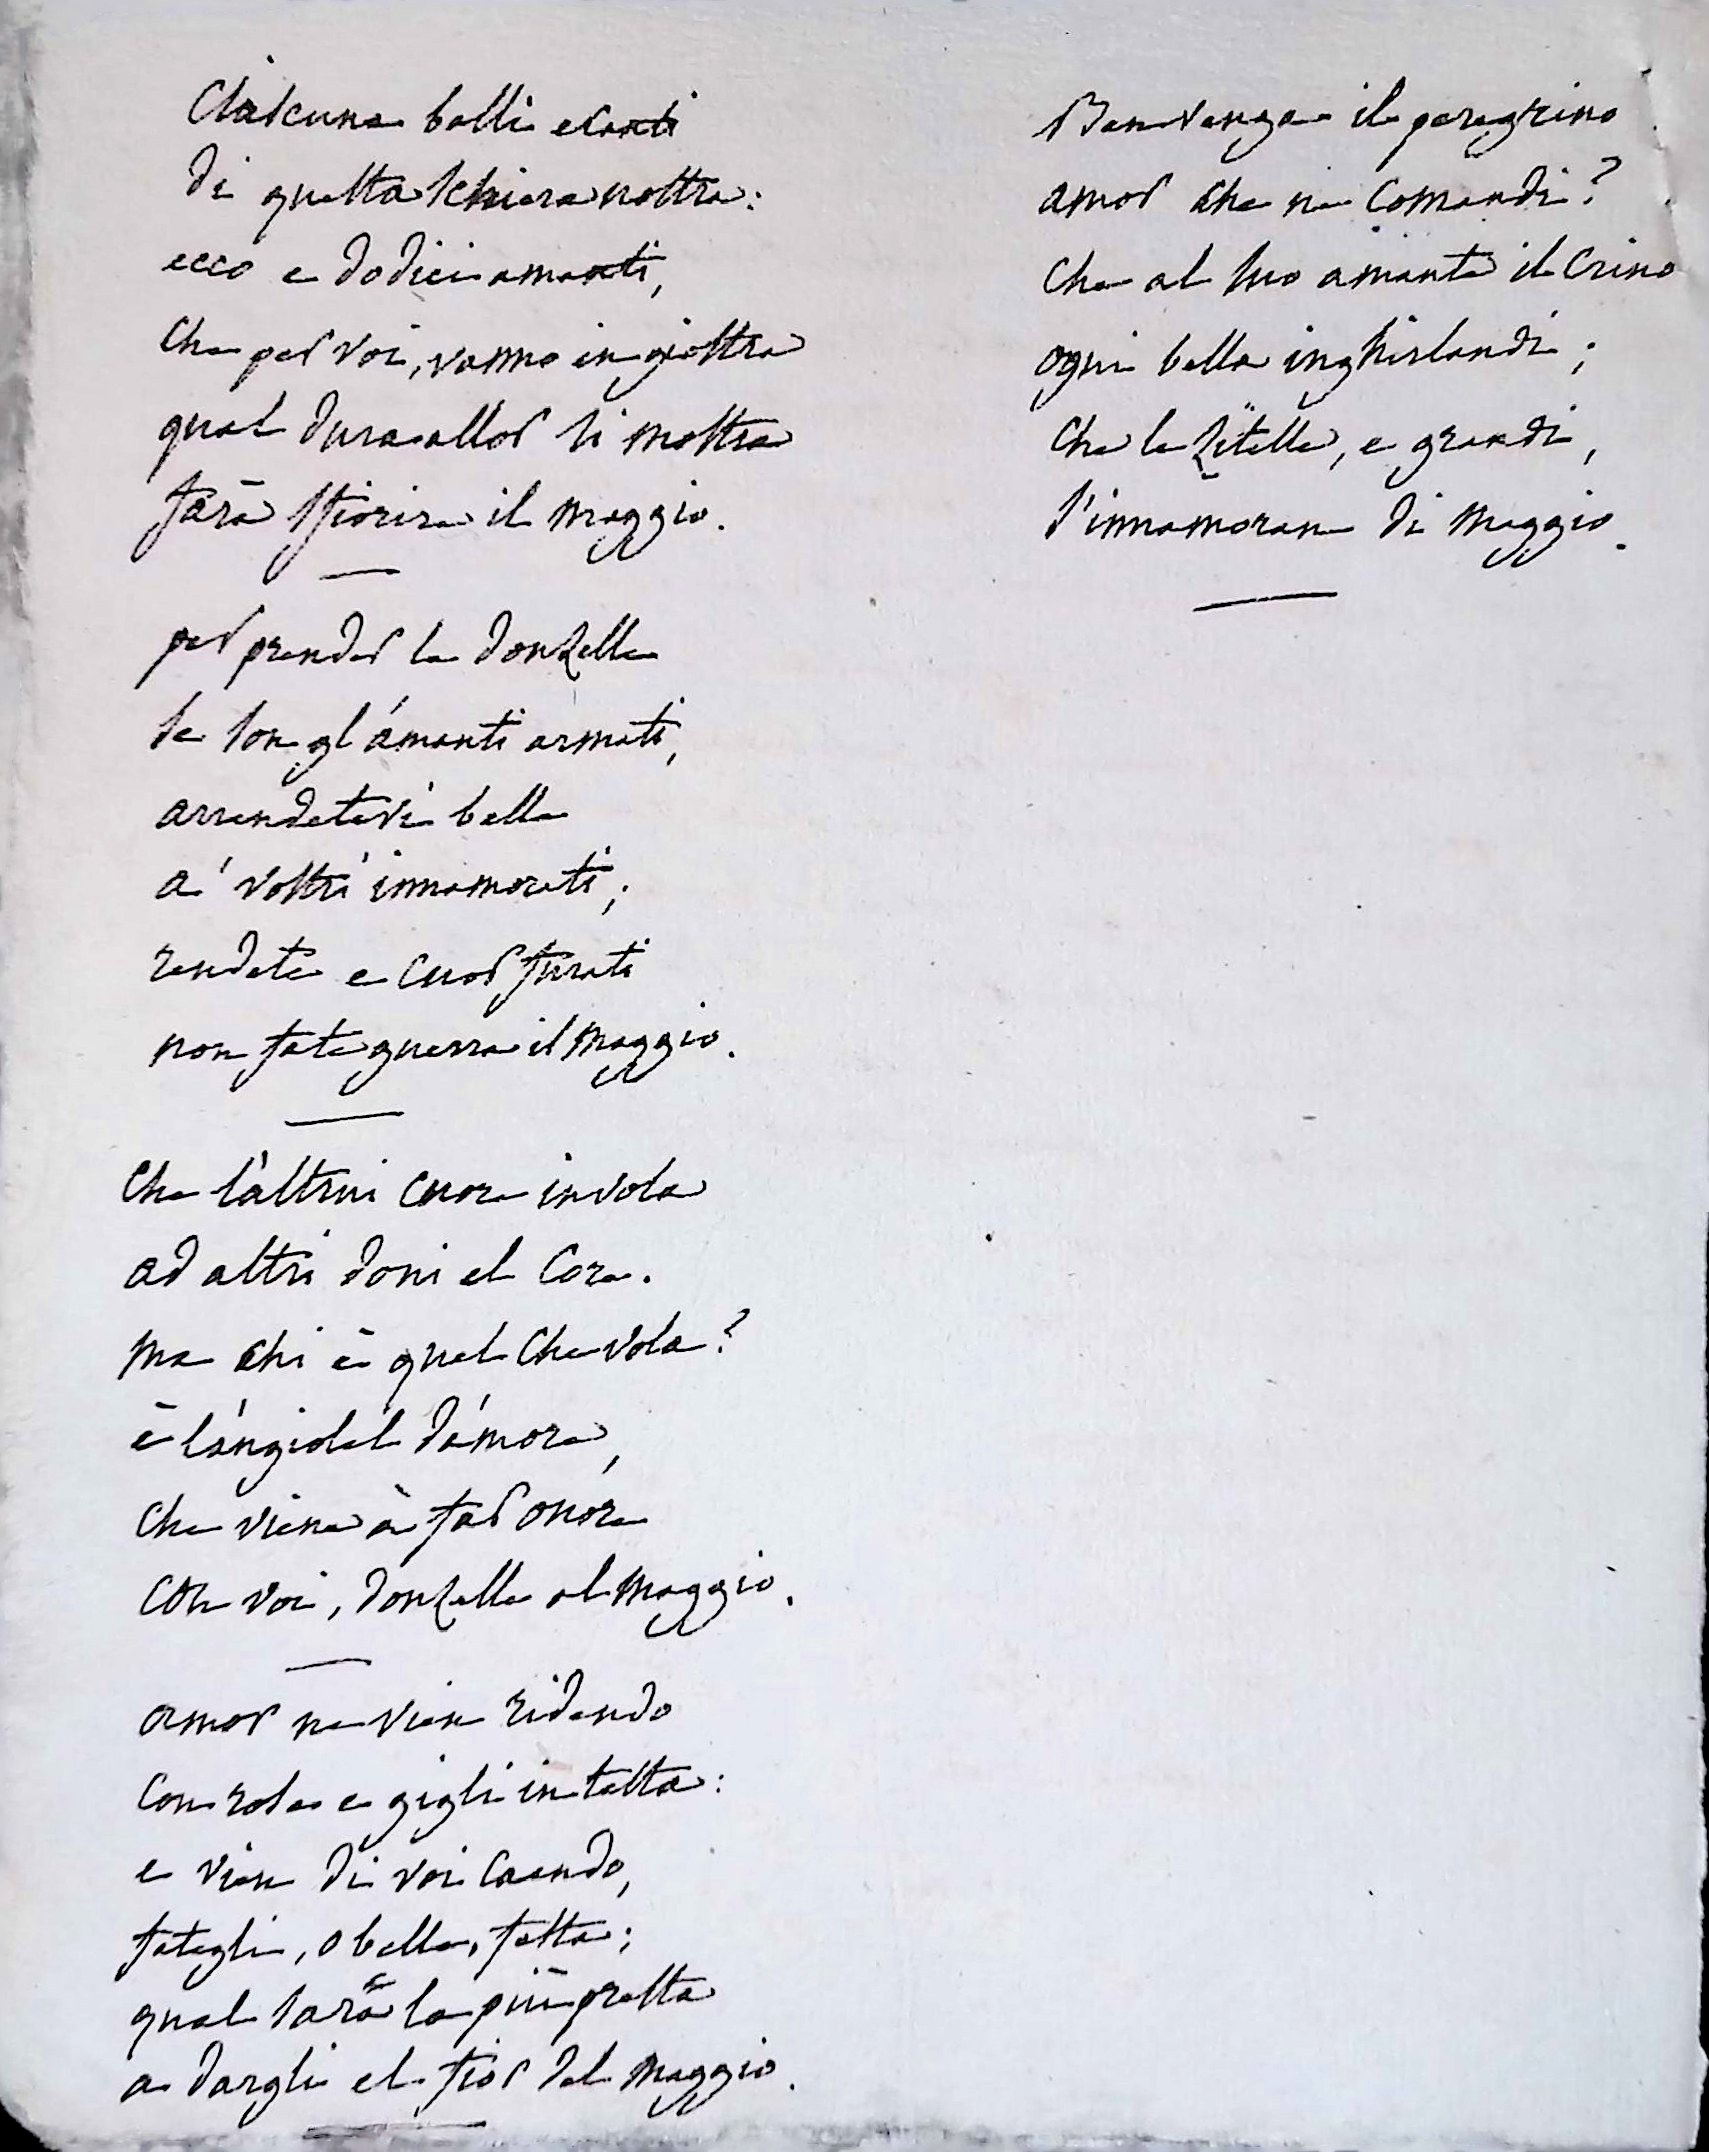 Ciascuna balli e canti
di questa schiera nostra:
ecco e dodici amanti,
che per voi, vanno in giostra
qual dura allor si mostra
farà sfiorire il maggio.
per prender le donzelle
se son gl'amanti armati,
arrendetevi belle
a' vostri innamorati;
rendete e cuor furati
non fate guerra il maggio.
Che l'altrui cuore invola
ad altri doni el core.
ma chi è quel che vola?
è l'angiolel d'amore,
che viene à far onore
con voi, donzelle al maggio.
amor ne vien ridendo
con rose e gigli in testa:
e vien di voi caendo,
fategli, o belle, festa;
qual sarà la più presta
a dargli el fior del maggio.
Ben venga il peregrino
amor che ne comandi?
che al suo amante il crino
ogni bella inghirlandi;
che le zitelle, e grandi,
s'innamoran di maggio.